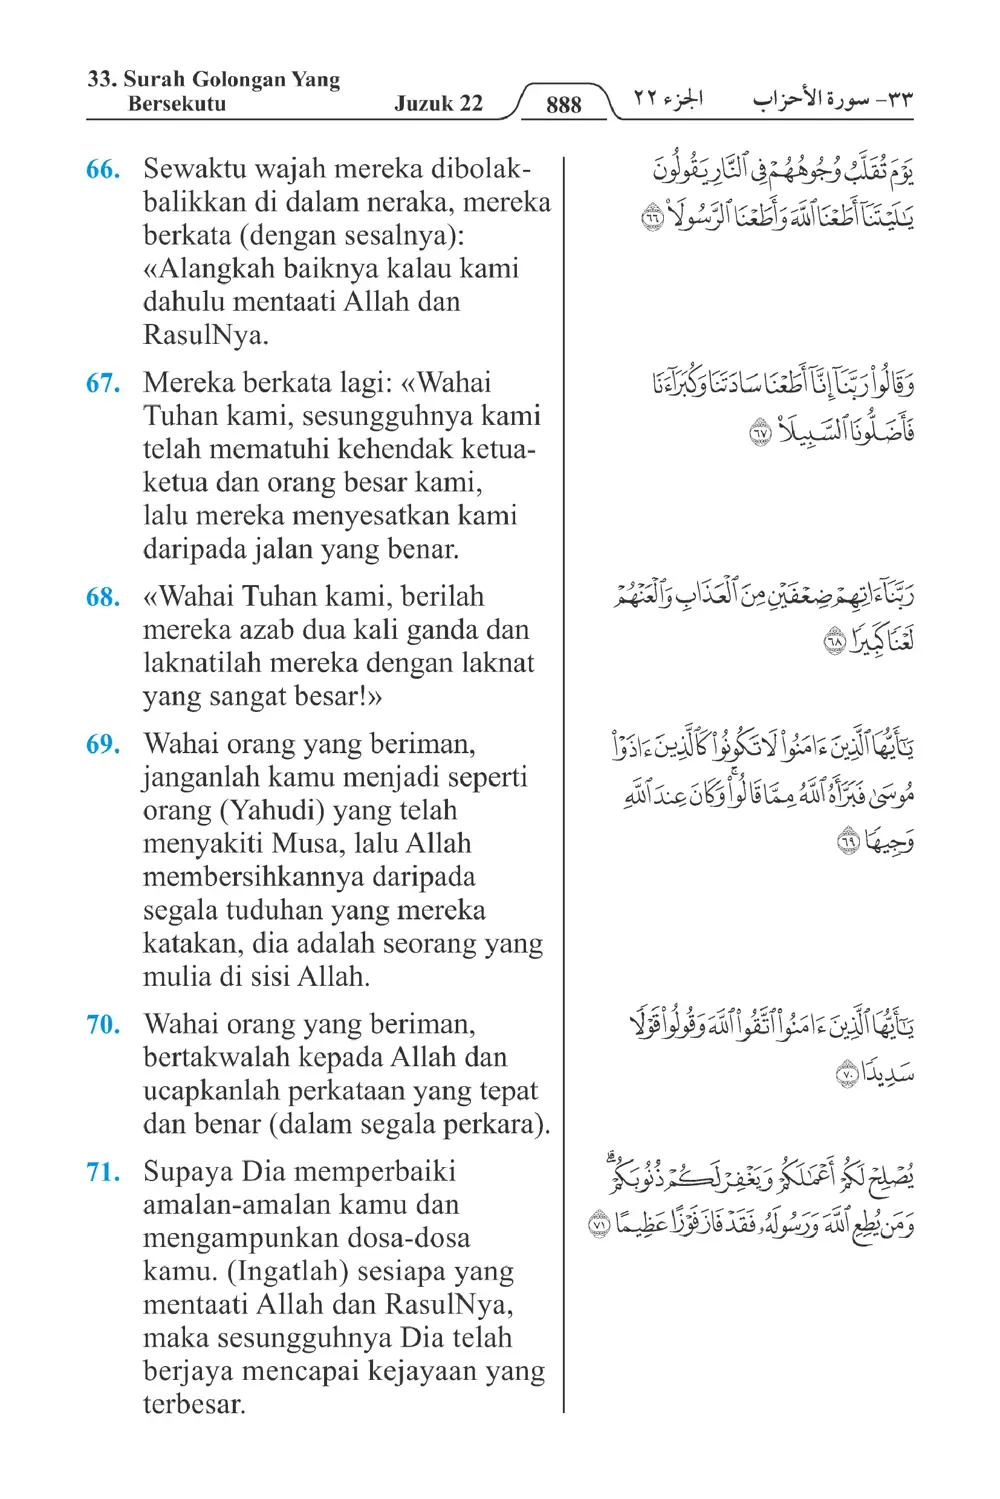 33. Surah Golongan Yang
Bersekutu
Juzuk 22
888
الجزء ٢٢
٣٣- سورة الأحزاب
66. Sewaktu wajah mereka dibolak-
balikkan di dalam neraka, mereka
berkata (dengan sesalnya):
«Alangkah baiknya kalau kami
dahulu mentaati Allah dan
RasulNya.
يَوْمَ تُقَلَّبُ وُجُوهُهُمْ فِي ٱلنَّارِ يَقُولُونَ
يَـٰلَيْتَنَآ أَطَعْنَا ٱللَّهَ وَأَطَعْنَا ٱلرَّسُولَا۠ ٦٦
67. Mereka berkata lagi: «Wahai
Tuhan kami, sesungguhnya kami
telah mematuhi kehendak ketua-
ketua dan orang besar kami,
lalu mereka menyesatkan kami
daripada jalan yang benar.
وَقَالُوا۟ رَبَّنَآ إِنَّآ أَطَعْنَا سَادَتَنَا وَكُبَرَآءَنَا
فَأَضَلُّونَا ٱلسَّبِيلَا۠ ٦٧
68. «Wahai Tuhan kami, berilah
mereka azab dua kali ganda dan
laknatilah mereka dengan laknat
yang sangat besar!»
رَبَّنَآ ءَاتِهِمْ ضِعْفَيْنِ مِنَ ٱلْعَذَابِ وَٱلْعَنْهُمْ
لَعْنًا كَبِيرًا ٦٨
69. Wahai orang yang beriman,
janganlah kamu menjadi seperti
orang (Yahudi) yang telah
menyakiti Musa, lalu Allah
membersihkannya daripada
segala tuduhan yang mereka
katakan, dia adalah seorang yang
mulia di sisi Allah.
يَـٰٓأَيُّهَا ٱلَّذِينَ ءَامَنُوا۟ لَا تَكُونُوا۟ كَٱلَّذِينَ ءَاذَوْا۟
مُوسَىٰ فَبَرَّأَهُ ٱللَّهُ مِمَّا قَالُوا۟ ۚ وَكَانَ عِندَ ٱللَّهِ
وَجِيهًا ٦٩
70. Wahai orang yang beriman,
bertakwalah kepada Allah dan
ucapkanlah perkataan yang tepat
dan benar (dalam segala perkara).
يَـٰٓأَيُّهَا ٱلَّذِينَ ءَامَنُوا۟ ٱتَّقُوا۟ ٱللَّهَ وَقُولُوا۟ قَوْلًا
سَدِيدًا ٧٠
71. Supaya Dia memperbaiki
amalan-amalan kamu dan
mengampunkan dosa-dosa
kamu. (Ingatlah) sesiapa yang
mentaati Allah dan RasulNya,
maka sesungguhnya Dia telah
berjaya mencapai kejayaan yang
terbesar.
يُصْلِحْ لَكُمْ أَعْمَـٰلَكُمْ وَيَغْفِرْ لَكُمْ ذُنُوبَكُمْ ۗ
وَمَن يُطِعِ ٱللَّهَ وَرَسُولَهُۥ فَقَدْ فَازَ فَوْزًا عَظِيمًا ٧١